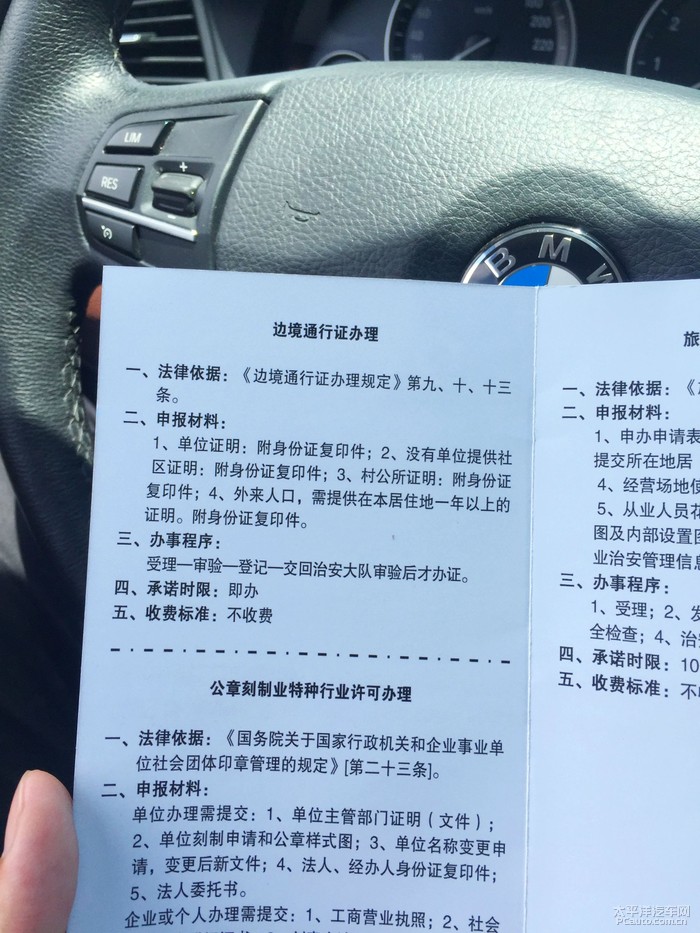 180
200
220
km/h
1
2
LIM
+
RES
BMW
边境通行证办理
一、法律依据：《边境通行证办理规定》第九、十、十三
条。
二、申报材料：
1、单位证明：附身份证复印件；2、没有单位提供社
区证明：附身份证复印件；3、村公所证明：附身份证
复印件；4、外来人口，需提供在本居住地一年以上的
证明。附身份证复印件。
三、办事程序：
受理—审验—登记—交回治安大队审验后才办证。
四、承诺时限：即办
五、收费标准：不收费
公章刻制业特种行业许可办理
一、法律依据：《国务院关于国家行政机关和企业事业单
位社会团体印章管理的规定》[第二十三条]。
二、申报材料：
单位办理需提交：1、单位主管部门证明（文件）；
2、单位刻制申请和公章样式图；3、单位名称变更申
请，变更后新文件；4、法人、经办人身份证复印件；
5、法人委托书。
企业或个人办理需提交：1、工商营业执照；2、社会
旅
一、法律依据：《
二、申报材料：
1、申办申请表
提交所在地居
4、经营场地使
5、从业人员花
图及内部设置图
业治安管理信息
三、办事程序：
1、受理；2、发
全检查；4、治
四、承诺时限：10
五、收费标准：不
太平洋汽车网
PCauto.com.cn